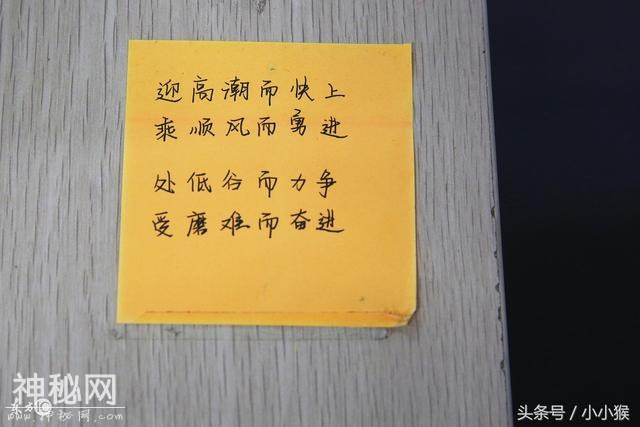 迎高潮而快上
乘顺风而勇进
处低谷而力争
受磨难而奋进
神秘网
头条号／小小猴